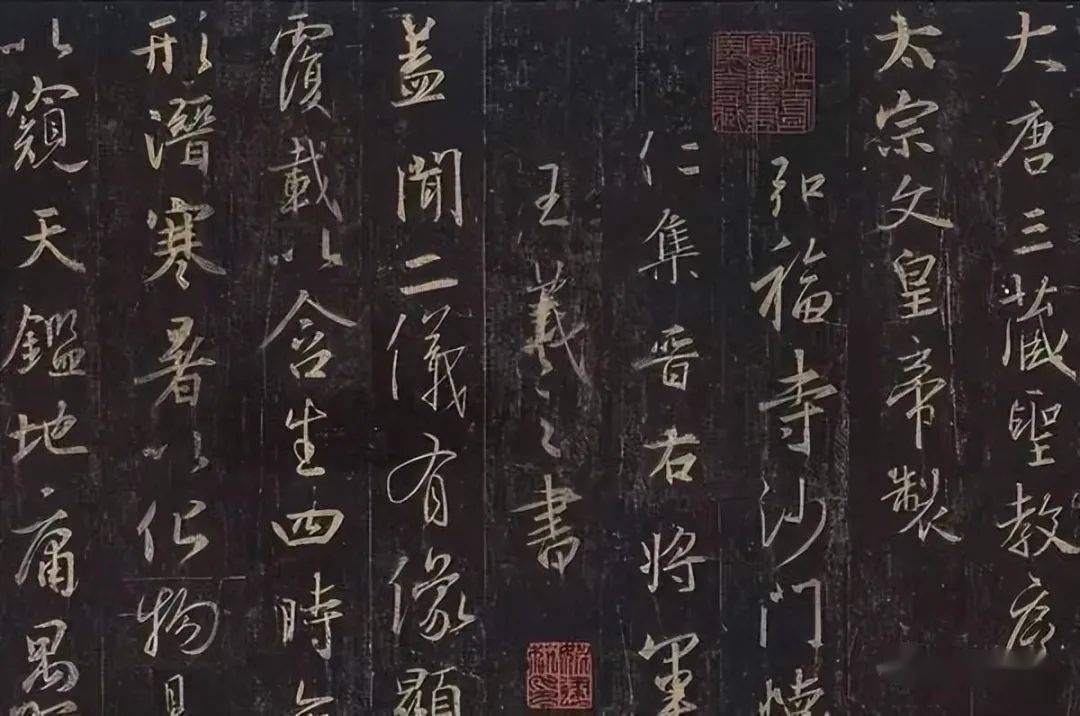 大唐三藏聖教序
太宗文皇帝製
弘福寺沙門懷
仁集晉右將軍
王羲之書
蓋聞二儀有像顯
覆載以含生四時無
形潛寒暑以化物是
以窺天鑑地庸愚皆